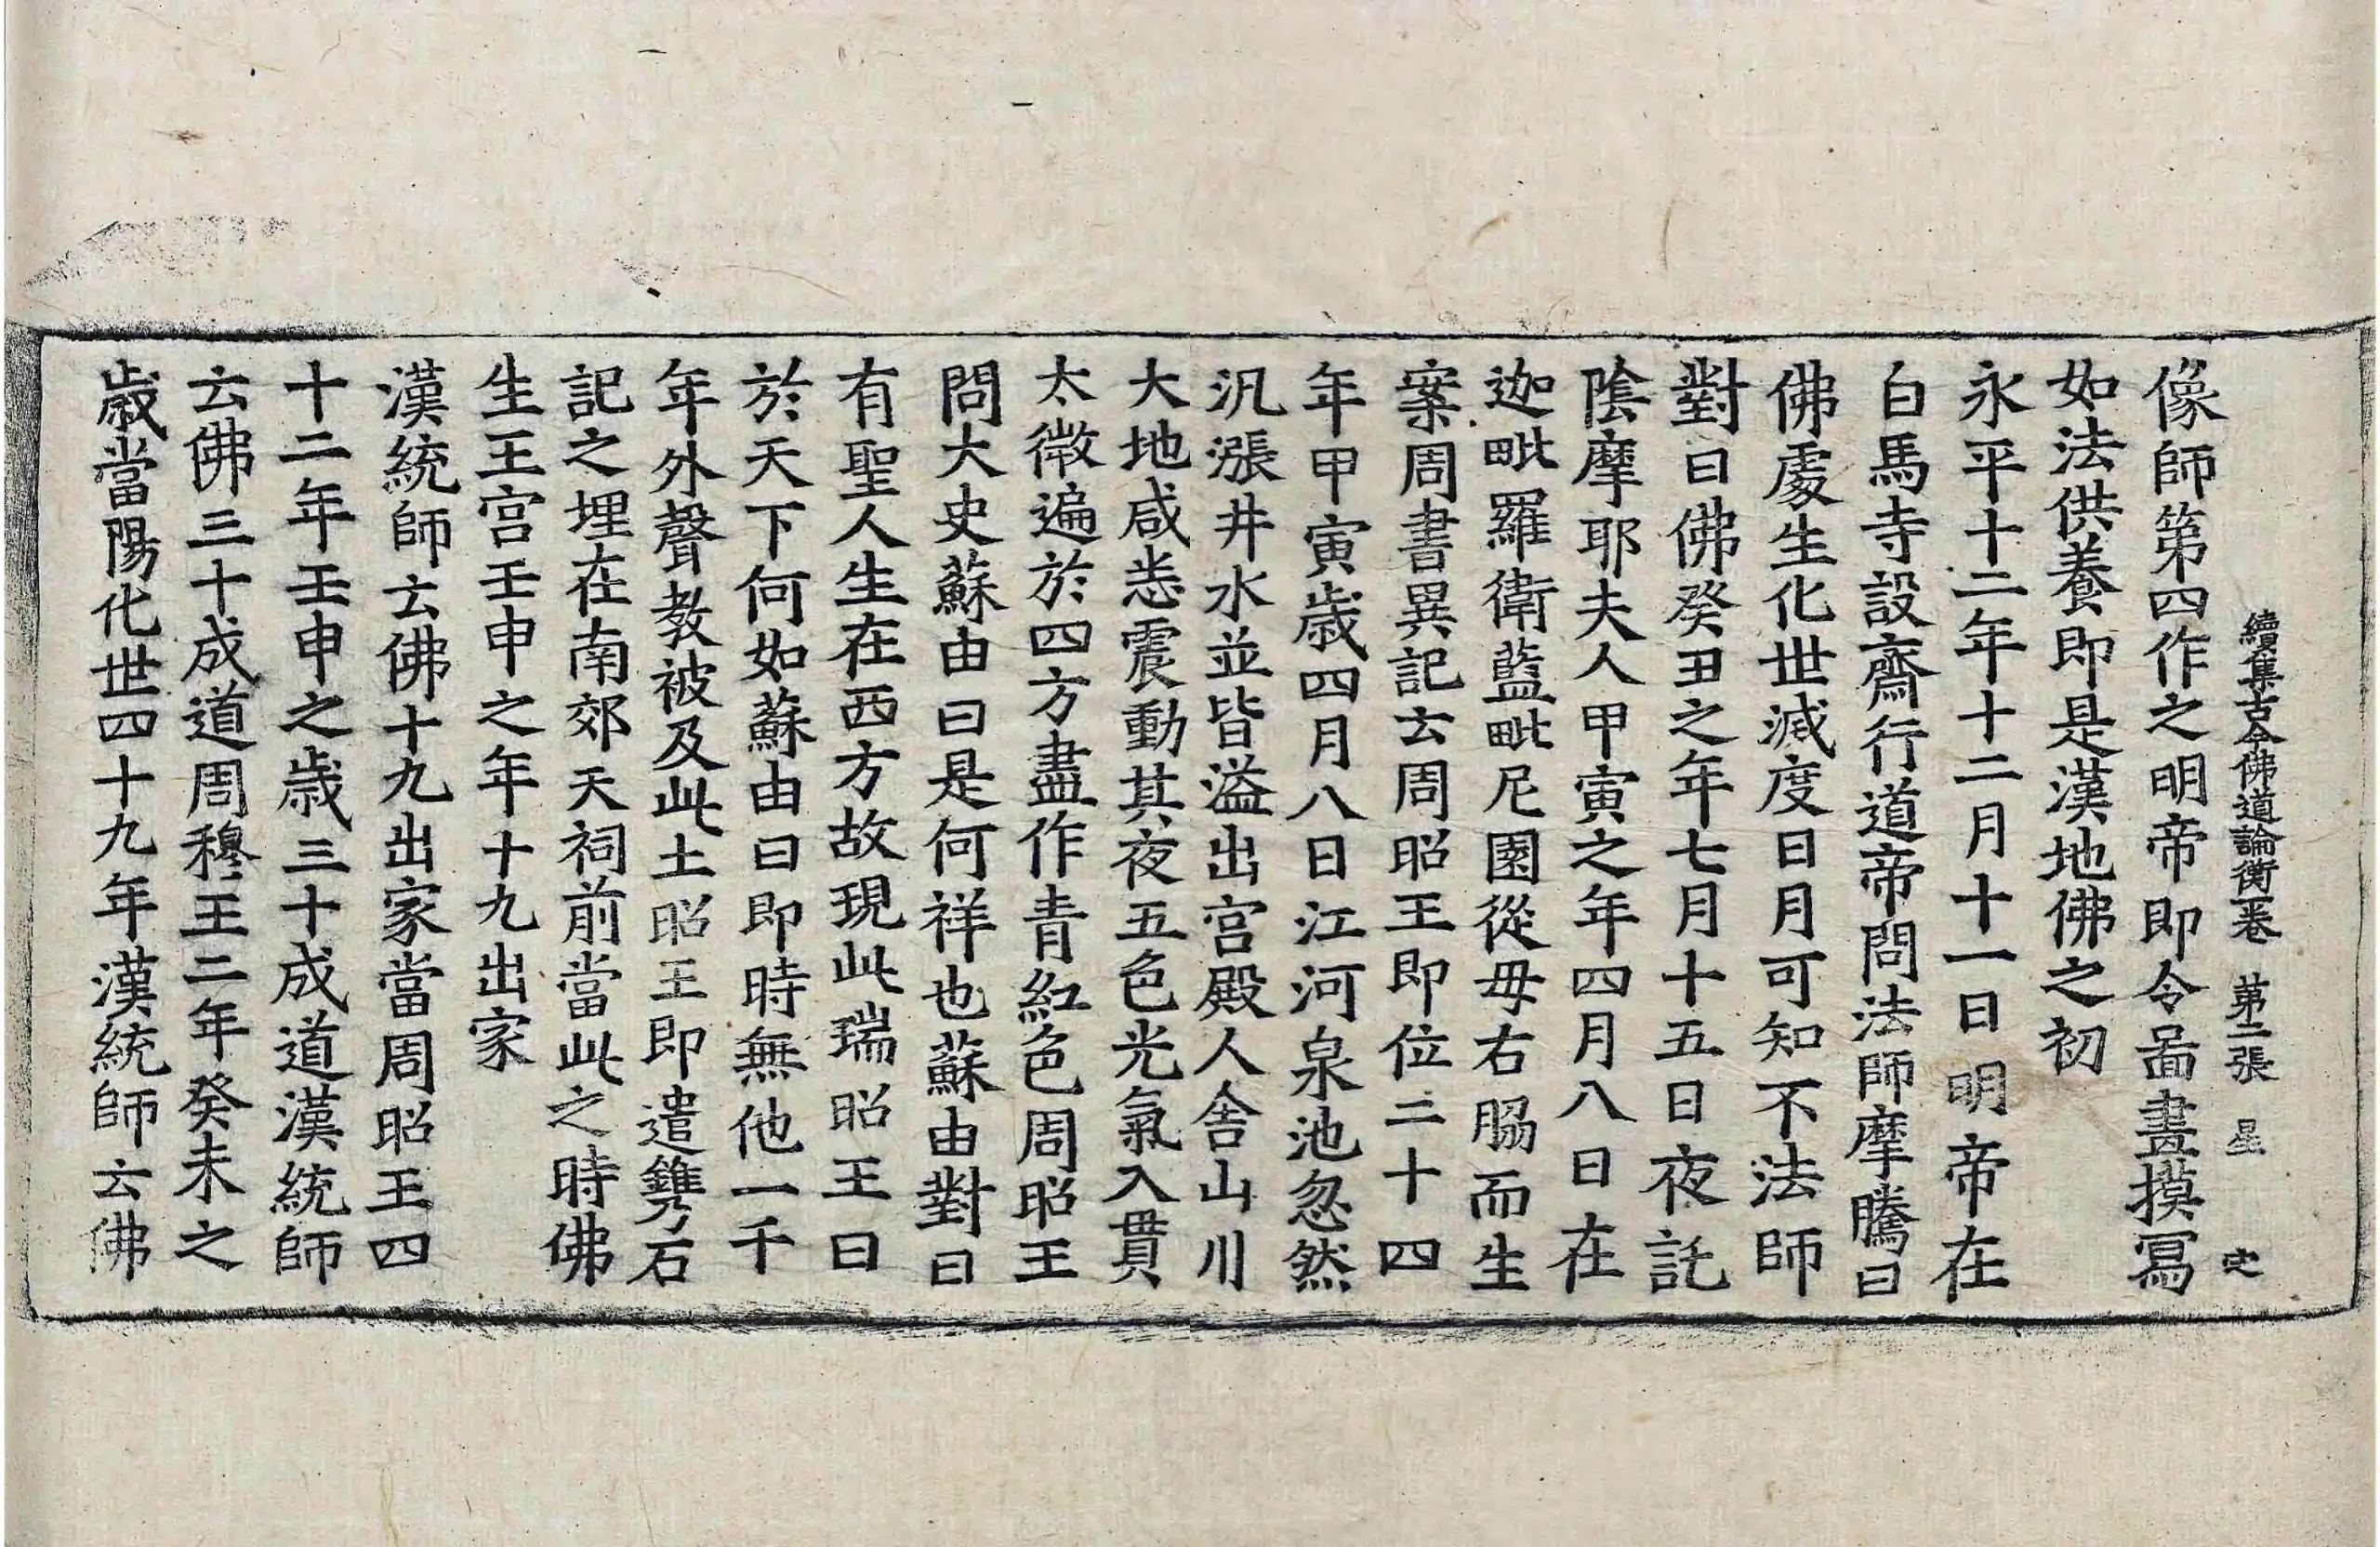 續集古今佛道論衡一卷 第二張 星 㝎
像師第四作之明帝即令啚畫摸寫
如法供養即是漢地佛之初
永平十二年十二月十一日明帝在
白馬寺設齋行道帝問法師摩騰曰
佛處生化世滅度日月可知不法師
對曰佛癸丑之年七月十五日夜託
陰摩耶夫人甲寅之年四月八日在
迦毗羅衛藍毗尼園從毋右脇而生
案周書異記云周昭王即位二十四
年甲寅歲四月八日江河泉池忽然
汎漲井水並皆溢出宮殿人舍山川
大地咸悉震動其夜五色光氣入貫
太微遍於四方盡作青紅色周昭王
問大史蘇由曰是何祥也蘇由對曰
有聖人生在西方故現此瑞昭王曰
於天下何如蘇由曰即時無他一千
年外聲教被及此土昭王即遣鐫石
記之埋在南郊天祠前當此之時佛
生王宮壬申之年十九出家
漢統師云佛十九出家當周昭王四
十二年壬申之歲三十成道漢統師
云佛三十成道周穆王二年癸未之
歲當陽化世四十九年漢統師云佛